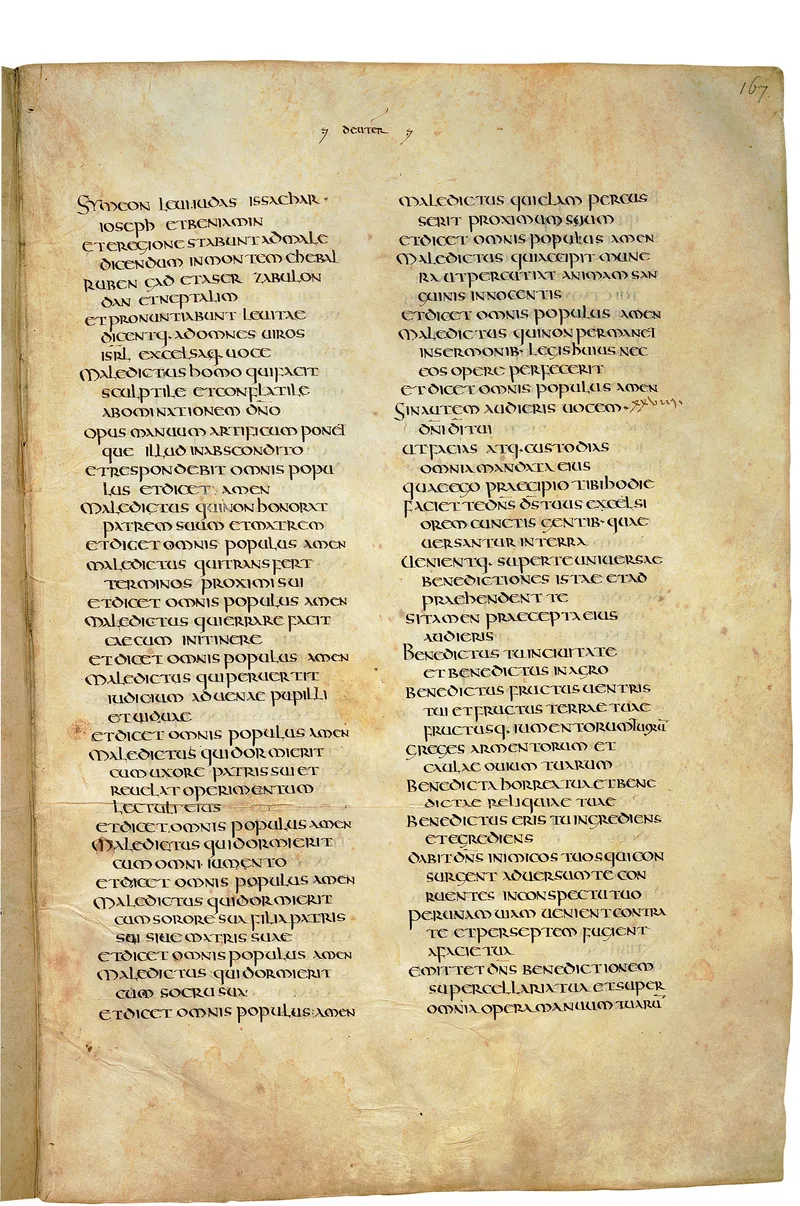 167
deuter
SYMEON LEUI IUDAS ISSACHAR
IOSEPH ET BENIAMIN
ET E REGIONE STABUNT AD MALE
DICENDUM IN MONTEM CHEBAL
RUBEN GAD ET ASER ZABULON
DAN ET NEPTALIM
ET PRONUNTIABUNT LEUITAE
DICENTQ· AD OMNES UIROS
ISRL EXCELSAQ· UOCE
MALEDICTUS HOMO QUI FACIT
SCULPTILE ET CONFLATILE
ABOMINATIONEM DÑO
OPUS MANUUM ARTIFICUM PONET
QUE ILLUD IN ABSCONDITO
ET RESPONDEBIT OMNIS POPU
LUS ET DICET AMEN
MALEDICTUS QUI NON HONORAT
PATREM SUUM ET MATREM
ET DICET OMNIS POPULUS AMEN
MALEDICTUS QUI TRANSFERT
TERMINOS PROXIMI SUI
ET DICET OMNIS POPULUS AMEN
MALEDICTUS QUI ERRARE FACIT
CAECUM IN ITINERE
ET DICET OMNIS POPULUS AMEN
MALEDICTUS QUI PERUERTIT
IUDICIUM ADUENAE PUPILLI
ET UIDUAE
ET DICET OMNIS POPULUS AMEN
MALEDICTUS QUI DORMIERIT
CUM UXORE PATRIS SUI ET
REUELAT OPERIMENTUM
LECTULI EIUS
ET DICET OMNIS POPULUS AMEN
MALEDICTUS QUI DORMIERIT
CUM OMNI IUMENTO
ET DICET OMNIS POPULUS AMEN
MALEDICTUS QUI DORMIERIT
CUM SORORE SUA FILIA PATRIS
SUI SIUE MATRIS SUAE
ET DICET OMNIS POPULUS AMEN
MALEDICTUS QUI DORMIERIT
CUM SOCRU SUA
ET DICET OMNIS POPULUS AMEN
MALEDICTUS QUI CLAM PERCUS
SERIT PROXIMUM SUUM
ET DICET OMNIS POPULUS AMEN
MALEDICTUS QUI ACCIPIT MUNE
RA UT PERCUTIAT ANIMAM SAN
GUINIS INNOCENTIS
ET DICET OMNIS POPULUS AMEN
MALEDICTUS QUI NON PERMANET
IN SERMONIB· LEGIS HUIUS NEC
EOS OPERE PERFECERIT
ET DICET OMNIS POPULUS AMEN
SIN AUTEM AUDIERIS UOCEM · xxviii
DÑI DĪ TUI
UT FACIAS ATQ· CUSTODIAS
OMNIA MANDATA EIUS
QUAE EGO PRAECIPIO TIBI HODIE
FACIET TE DÑS DS TUUS EXCELSI
OREM CUNCTIS GENTIB· QUAE
UERSANTUR IN TERRA
UENIENTQ· SUPER TE UNIUERSAE
BENEDICTIONES ISTAE ET AD
PRAEHENDENT TE
SI TAMEN PRAECEPTA EIUS
AUDIERIS
BENEDICTUS TU IN CIUITATE
ET BENEDICTUS IN AGRO
BENEDICTUS FRUCTUS UENTRIS
TUI ET FRUCTUS TERRAE TUAE
FRUCTUSQ· IUMENTORUM tuorū
GREGES ARMENTORUM ET
CAULAE OUIUM TUARUM
BENEDICTA HORREA TUA ET BENE
DICTAE RELIQUIAE TUAE
BENEDICTUS ERIS TU INGREDIENS
ET EGREDIENS
DABIT DÑS INIMICOS TUOS QUI CON
SURGENT ADUERSUM TE CON
RUENTES IN CONSPECTU TUO
PER UNAM UIAM UENIENT CONTRA
TE ET PER SEPTEM FUGIENT
A FACIE TUA
EMITTET DÑS BENEDICTIONEM
SUPER CELLARIA TUA ET SUPER
OMNIA OPERA MANUUM TUARŪ